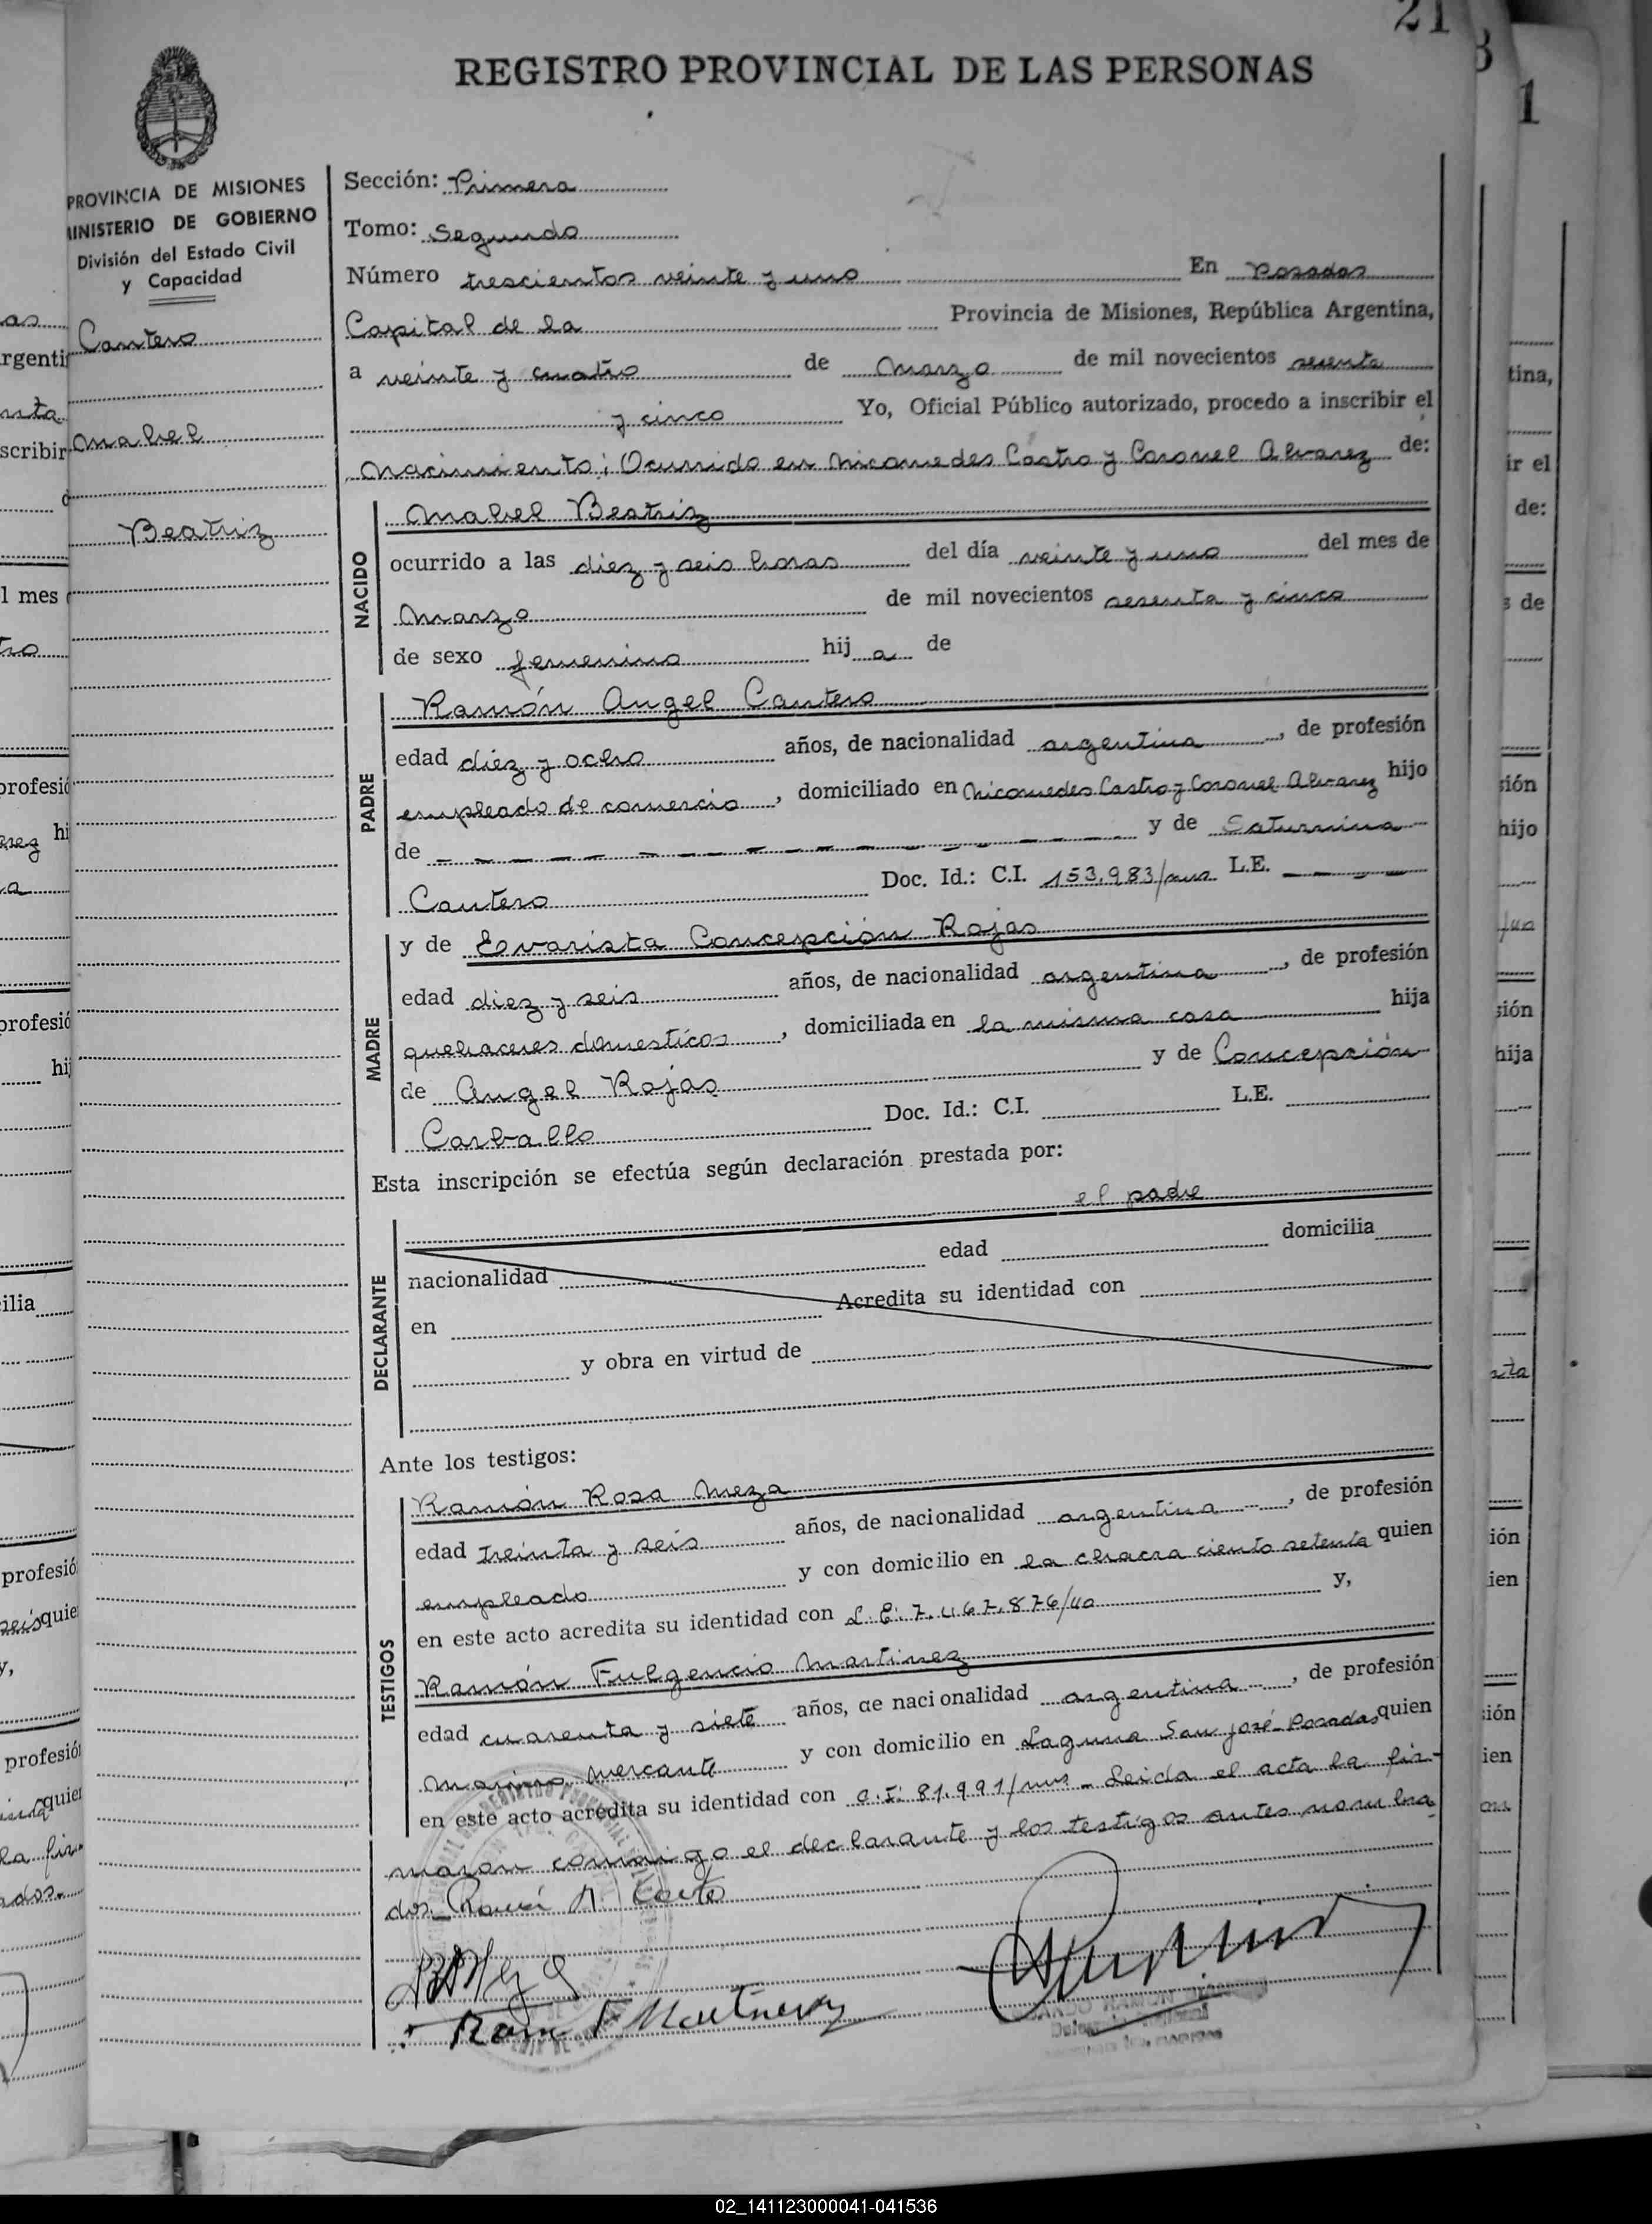 21
REGISTRO PROVINCIAL DE LAS PERSONAS
PROVINCIA DE MISIONES
MINISTERIO DE GOBIERNO
División del Estado Civil
y Capacidad
Cantero
Mabel
Beatriz
Sección: Primera
Tomo: Segundo
Número trescientos veinte y uno En Posadas
Capital de la Provincia de Misiones, República Argentina,
a veinte y cuatro de Marzo de mil novecientos sesenta
y cinco Yo, Oficial Público autorizado, procedo a inscribir el
Nacimiento; Ocurrido en Nicomedes Castro y Coronel Alvarez de:
NACIDO
Mabel Beatriz
ocurrido a las diez y seis horas del día veinte y uno del mes de
Marzo de mil novecientos sesenta y cinco
de sexo femenino hij a de
PADRE
Ramón Angel Cantero
edad diez y ocho años, de nacionalidad argentina, de profesión
empleado de comercio, domiciliado en Nicomedes Castro y Coronel Alvarez hijo
de - - - - - - - - - - - y de Saturnina
Cantero Doc. Id.: C.I. 153.983/mns L.E. - - - -
MADRE
y de Evarista Concepción Rojas
edad diez y seis años, de nacionalidad argentina, de profesión
quehaceres domesticos, domiciliada en la misma casa hija
de Angel Rojas y de Concepción
Carballo Doc. Id.: C.I. L.E.
Esta inscripción se efectúa según declaración prestada por:
el padre
DECLARANTE
edad domicilia
nacionalidad
en Acredita su identidad con
y obra en virtud de
Ante los testigos:
TESTIGOS
Ramón Rosa Meza
edad treinta y seis años, de nacionalidad argentina, de profesión
empleado y con domicilio en la chacra ciento setenta quien
en este acto acredita su identidad con L.E. 7.467.876/40 y,
Ramón Fulgencio Martinez
edad cuarenta y siete años, de nacionalidad argentina, de profesión
marino mercante y con domicilio en Laguna San José-Posadas quien
en este acto acredita su identidad con C.I. 81.991/mns - Leida el acta la fir-
maron conmigo el declarante y los testigos antes nombra
dos._ Ramón A. Cantero
Ramon F Martinez
02_141123000041-041536